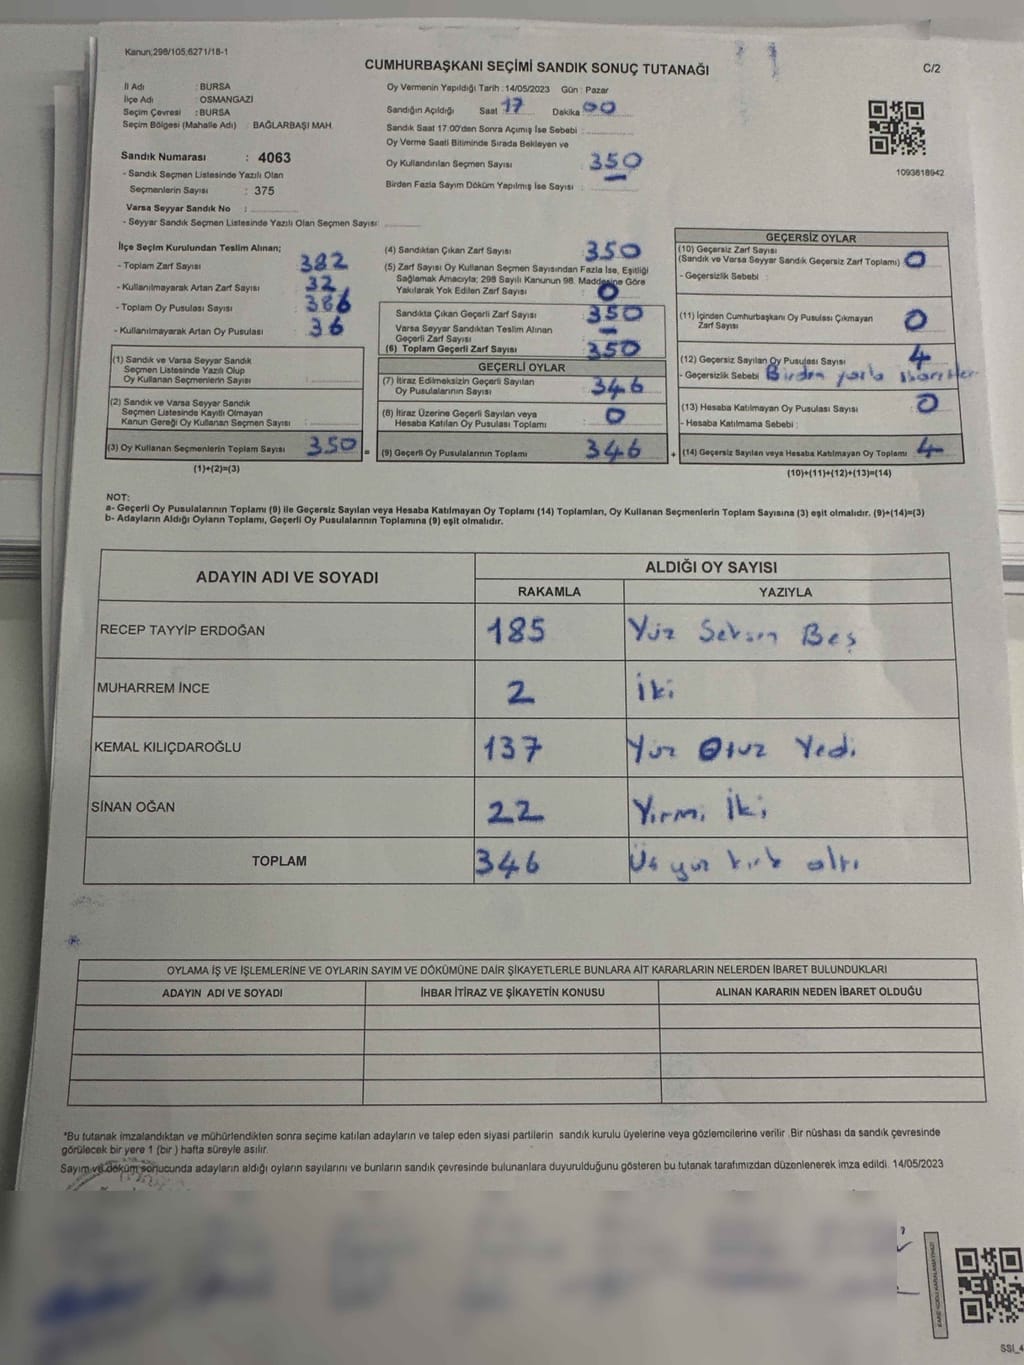 Kanun;298/105;6271/18-1
CUMHURBAŞKANI SEÇİMİ SANDIK SONUÇ TUTANAĞI
C/2
İl Adı : BURSA
İlçe Adı : OSMANGAZİ
Seçim Çevresi : BURSA
Seçim Bölgesi (Mahalle Adı) : BAĞLARBAŞI MAH.
Sandık Numarası : 4063
- Sandık Seçmen Listesinde Yazılı Olan
Seçmenlerin Sayısı : 375
Varsa Seyyar Sandık No :
- Seyyar Sandık Seçmen Listesinde Yazılı Olan Seçmen Sayısı:
Oy Vermenin Yapıldığı Tarih : 14/05/2023 Gün : Pazar
Sandığın Açıldığı Saat 17 Dakika 00
Sandık Saat 17:00'den Sonra Açımış İse Sebebi :
Oy Verme Saati Bitiminde Sırada Bekleyen ve
Oy Kullandırılan Seçmen Sayısı 350
Birden Fazla Sayım Döküm Yapılmış İse Sayısı : —
1093818942
İlçe Seçim Kurulundan Teslim Alınan;
- Toplam Zarf Sayısı 382
- Kullanılmayarak Artan Zarf Sayısı 32
- Toplam Oy Pusulası Sayısı 386
- Kullanılmayarak Artan Oy Pusulası 36
(1) Sandık ve Varsa Seyyar Sandık
Seçmen Listesinde Yazılı Olup
Oy Kullanan Seçmenlerin Sayısı :
(2) Sandık ve Varsa Seyyar Sandık
Seçmen Listesinde Kayıtlı Olmayan
Kanun Gereği Oy Kullanan Seçmen Sayısı :
(3) Oy Kullanan Seçmenlerin Toplam Sayısı 350 =
(1)+(2)=(3)
(4) Sandıktan Çıkan Zarf Sayısı 350
(5) Zarf Sayısı Oy Kullanan Seçmen Sayısından Fazla İse, Eşitliği
Sağlamak Amacıyla; 298 Sayılı Kanunun 98. Maddesine Göre
Yakılarak Yok Edilen Zarf Sayısı 0
Sandıkta Çıkan Geçerli Zarf Sayısı 350
Varsa Seyyar Sandıktan Teslim Alınan
Geçerli Zarf Sayısı —
(6) Toplam Geçerli Zarf Sayısı 350
GEÇERLİ OYLAR
(7) İtiraz Edilmeksizin Geçerli Sayılan
Oy Pusulalarının Sayısı 346
(8) İtiraz Üzerine Geçerli Sayılan veya
Hesaba Katılan Oy Pusulası Toplamı 0
(9) Geçerli Oy Pusulalarının Toplamı 346 +
GEÇERSİZ OYLAR
(10) Geçersiz Zarf Sayısı
(Sandık ve Varsa Seyyar Sandık Geçersiz Zarf Toplamı) 0
- Geçersizlik Sebebi :
(11) İçinden Cumhurbaşkanı Oy Pusulası Çıkmayan
Zarf Sayısı 0
(12) Geçersiz Sayılan Oy Pusulası Sayısı 4
- Geçersizlik Sebebi Birden
(13) Hesaba Katılmayan Oy Pusulası Sayısı : 0
- Hesaba Katılmama Sebebi :
(14) Geçersiz Sayılan veya Hesaba Katılmayan Oy Toplamı 4
(10)+(11)+(12)+(13)=(14)
NOT:
a- Geçerli Oy Pusulalarının Toplamı (9) ile Geçersiz Sayılan veya Hesaba Katılmayan Oy Toplamı (14) Toplamları, Oy Kullanan Seçmenlerin Toplam Sayısına (3) eşit olmalıdır. (9)+(14)=(3)
b- Adayların Aldığı Oyların Toplamı, Geçerli Oy Pusulalarının Toplamına (9) eşit olmalıdır.
ADAYIN ADI VE SOYADI ALDIĞI OY SAYISI
RAKAMLA YAZIYLA
RECEP TAYYİP ERDOĞAN 185 Yüz Seksen Beş
MUHARREM İNCE 2 İki
KEMAL KILIÇDAROĞLU 137 Yüz Otuz Yedi
SİNAN OĞAN 22 Yirmi İki
TOPLAM 346 Üç yüz kırk altı
OYLAMA İŞ VE İŞLEMLERİNE VE OYLARIN SAYIM VE DÖKÜMÜNE DAİR ŞİKAYETLERLE BUNLARA AİT KARARLARIN NELERDEN İBARET BULUNDUKLARI
ADAYIN ADI VE SOYADI İHBAR İTİRAZ VE ŞİKAYETİN KONUSU ALINAN KARARIN NEDEN İBARET OLDUĞU
*Bu tutanak imzalandıktan ve mühürlendikten sonra seçime katılan adayların ve talep eden siyasi partilerin sandık kurulu üyelerine veya gözlemcilerine verilir .Bir nüshası da sandık çevresinde
görülecek bir yere 1 (bir ) hafta süreyle asılır.
Sayım ve döküm sonucunda adayların aldığı oyların sayılarını ve bunların sandık çevresinde bulunanlara duyurulduğunu gösteren bu tutanak tarafımızdan düzenlenerek imza edildi. 14/05/2023
SSI_4